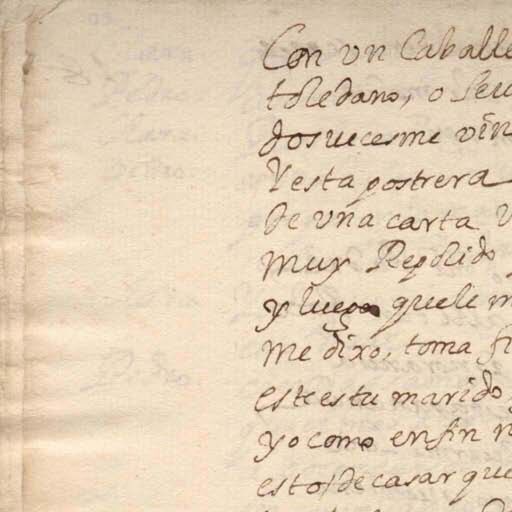 Con vn Caballe
toledano, o Seu
dos vecesme vin
Yesta postrera
de vna carta V
muy Repolido
y luego quele m
me dixo, toma fi
este estu marido
yo como enfin n
esto, de casar que